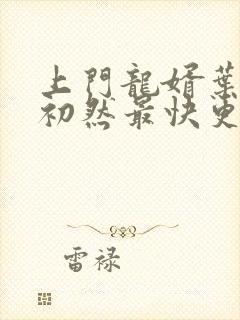 上門龍婿葉
初然最快更
雷禄